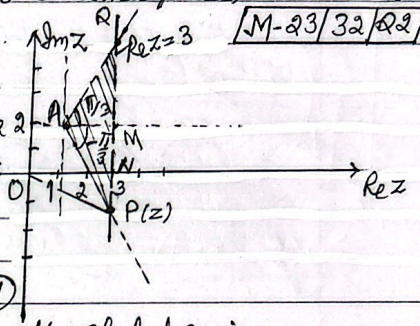 M-23/32/Q2
Q
Im z
Re z = 3
A
π/3
2
M
-π/3
N
O
1
2
3
Re z
P(z)